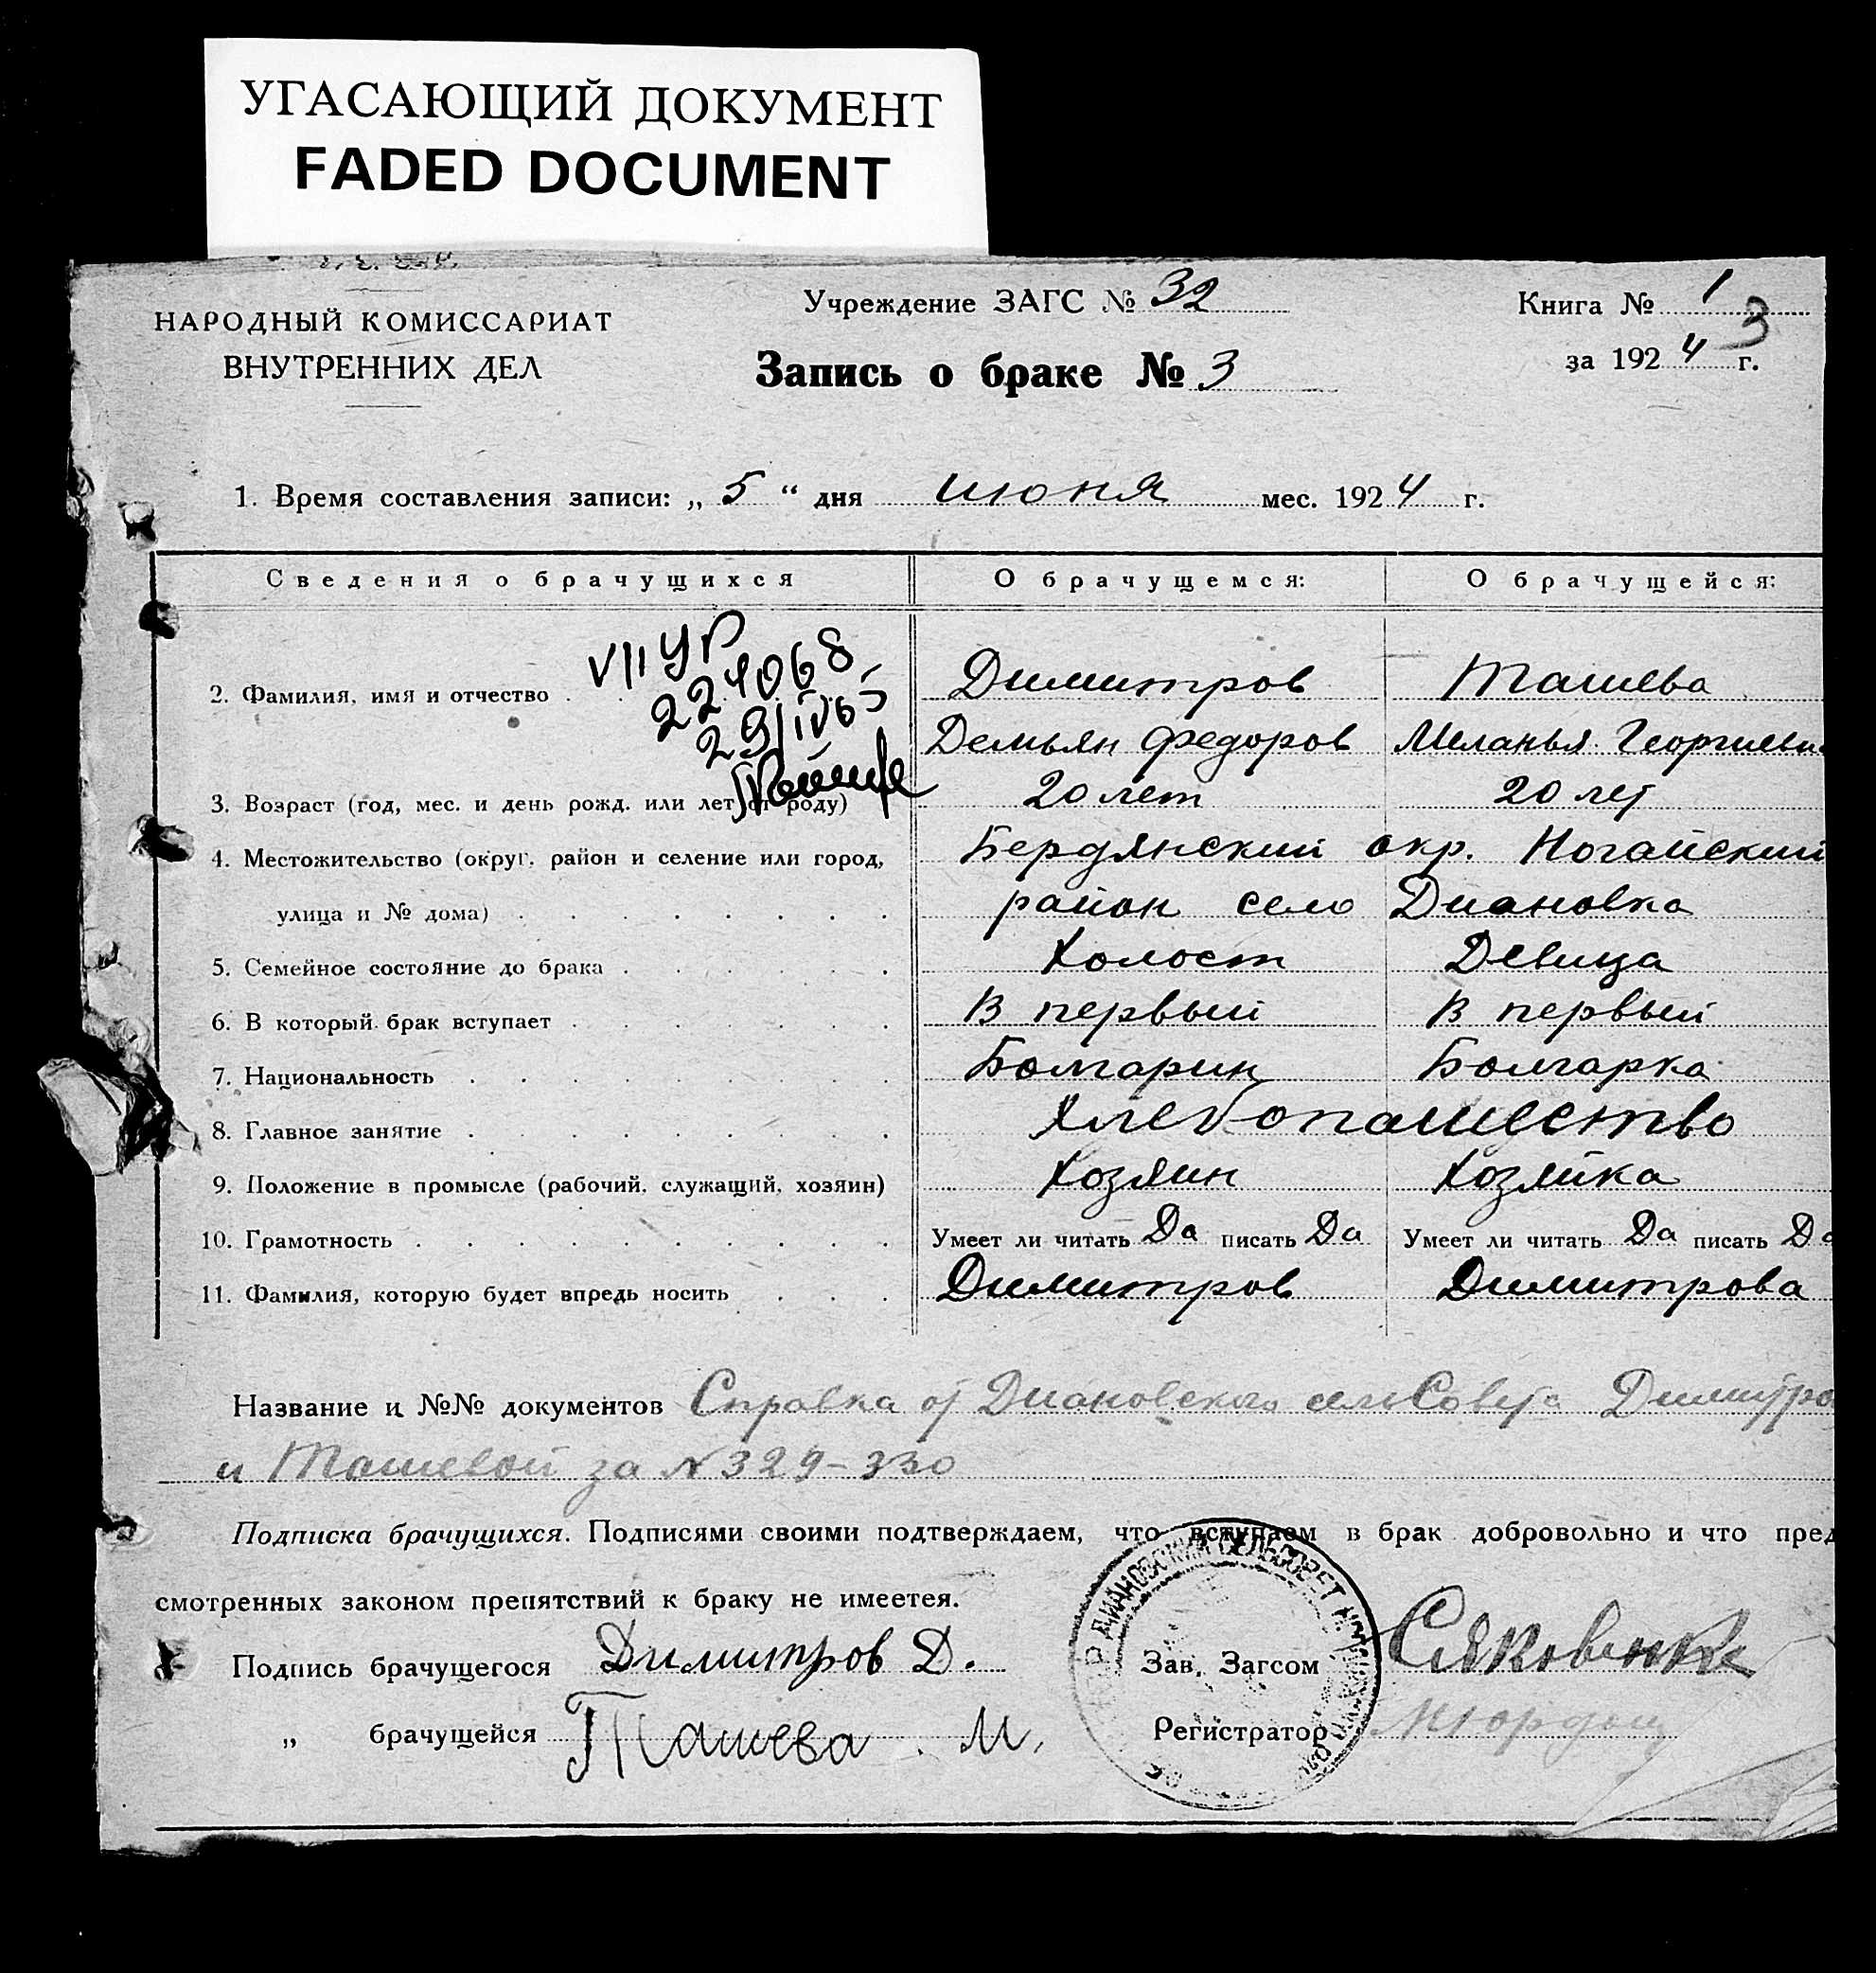 УГАСАЮЩИЙ ДОКУМЕНТ
FADED DOCUMENT
НАРОДНЫЙ КОМИССАРИАТ
ВНУТРЕННИХ ДЕЛ
Учреждение ЗАГС № 32
Книга № 1
3
Запись о браке № 3
за 1924 г.
1. Время составления записи: „ 5 “ дня июня мес. 1924 г.
Сведения о брачущихся О брачущемся: О брачущейся:
VII УР
224068
2. Фамилия, имя и отчество Димитров Ташева
Демьян Федоров Меланья Георгиевн
3. Возраст (год, мес. и день рожд. или лет от роду) 20 лет 20 лет
4. Местожительство (округ, район и селение или город, Бердянский окр. Ногайский
улица и № дома) район село Диановка
5. Семейное состояние до брака Холост Девица
6. В который брак вступает В первый В первый
7. Национальность Болгарин Болгарка
8. Главное занятие Хлебопашество
9. Положение в промысле (рабочий, служащий, хозяин) Хозяин Хозяйка
10. Грамотность Умеет ли читать Да писать Да Умеет ли читать Да писать Да
11. Фамилия, которую будет впредь носить Димитров Димитрова
Название и №№ документов Справка от Диановского сельСовета Димитро
и Ташевой за N 329-330
Подписка брачущихся. Подписями своими подтверждаем, что вступаем в брак добровольно и что пред
смотренных законом препятствий к браку не имеетея.
ДИАНОВСКИЙ СЕЛЬСОВЕТ
Подпись брачущегося Димитров Д. Зав. Загсом
„ брачущейся Ташева М. Регистратор